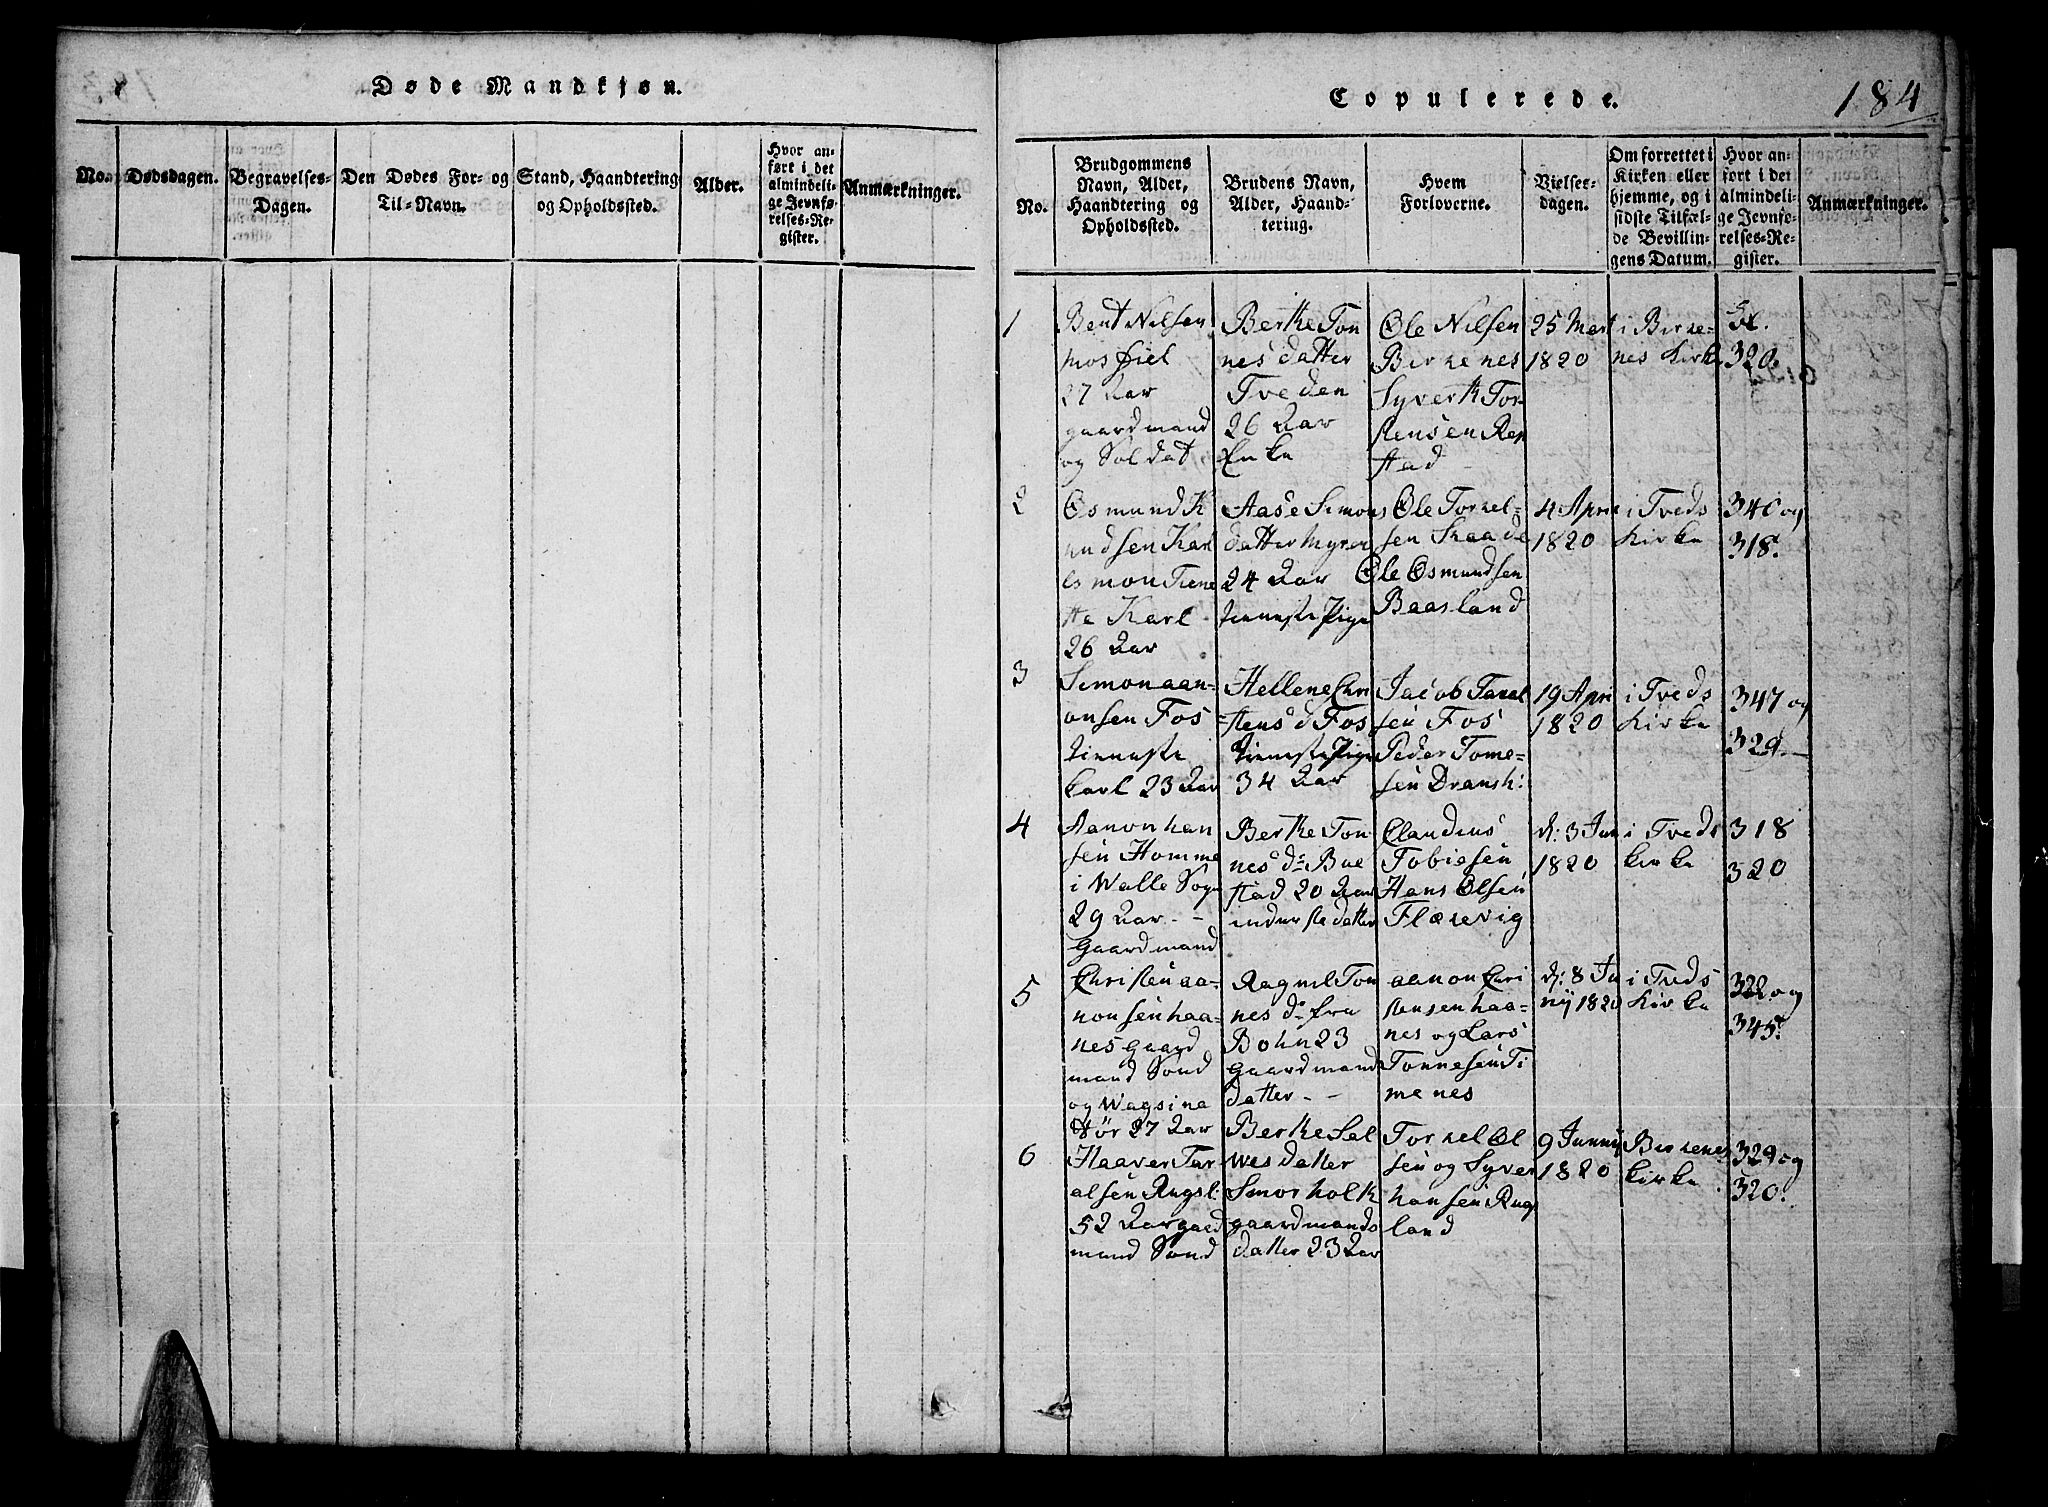 Døde Mandkjøn.
No.
Dødsdagen.
Begravelses-
Dagen.
Den Dødes For- og
Til-Navn.
Stand, Haandtering
og Opholdssted.
Alder.
Hvor an-
ført i det
almindeli-
ge Jevnfø-
relses-Re-
gister.
Anmærkninger.
Copulerede.
184
No.
Brudgommens
Navn, Alder,
Haandtering og
Opholdssted.
Brudens Navn,
Alder, Haand-
tering.
Hvem
Forloverne.
Vielses-
dagen.
Om forrettet i
Kirken eller
hjemme, og i
sidste Tilfæl-
de Bevillin-
gens Datum.
Hvor an-
ført i det
almindeli-
ge Jevnfø-
relses-Re-
gister.
Anmærkninger.
1
Bent Nilsen
Mosfiel
27 Aar
gaardmand
og Soldat
Berthe Ton
nes datter
Tveden
26 Aar
Enke
Ole Nilsen
Birkenes
Syvert Tor-
stensen Rep
stad
25 Mart
1820
i Birke-
nes Kirke
320.
2
Osmund K
nudsen Karl
esmon Tiene
ste Karl
26 Aar
Aase Simons
datter Myren
24 Aar
tieneste Pige
Ole Torkel-
sen Skaade
Ole Osmundsen
Baasland
4 Apri
1820
i Tveds
Kirke
340 og
318.
3
Simon aan-
onsen Fos
tieneste
karl 23 Aar
Hellene Chri
stens d Fos
tieneste Pige
34 Aar
Jacob Tarel
sen Fos
Peder Tome-
sen Dransh:
19 Apri
1820
i Tveds
Kirke
347 og
329.
4
Aanon han
sen Homme
i Walle Sogn
29 Aar
Gaardmand
Berthe Ton
nes d: Boe
stad 20 Aar
inderste datter
Claudius
Tobiesen
Hans Olsen
Flarevig
d: 3 Jun
1820
i Tveds
kirke
318
320
5
Christen aa-
nonsen haa-
nes Gaard
mand Sond
og Wagsine
tør 27 Aar
Ragnel Ton
nes d: fra
Bohn 23
Gaardmand
datter
aanon Chri
stensen haa-
nes og Lars
Tonnesen Ti
menes
d: 8 Ju
nij 1820
i Tveds
Kirke
322 og
345.
6
Haaver Tar
alsen Rugsl:
52 Aar gaed
mand Sond
Berthe Sal
wes datter
Smorholt
gaardmands
datter 23 Aar
Torkel Ol
sen og Syver
hansen Rugs
land
9 Junnij
1820
Birkenes
Kirke
329 og
320.